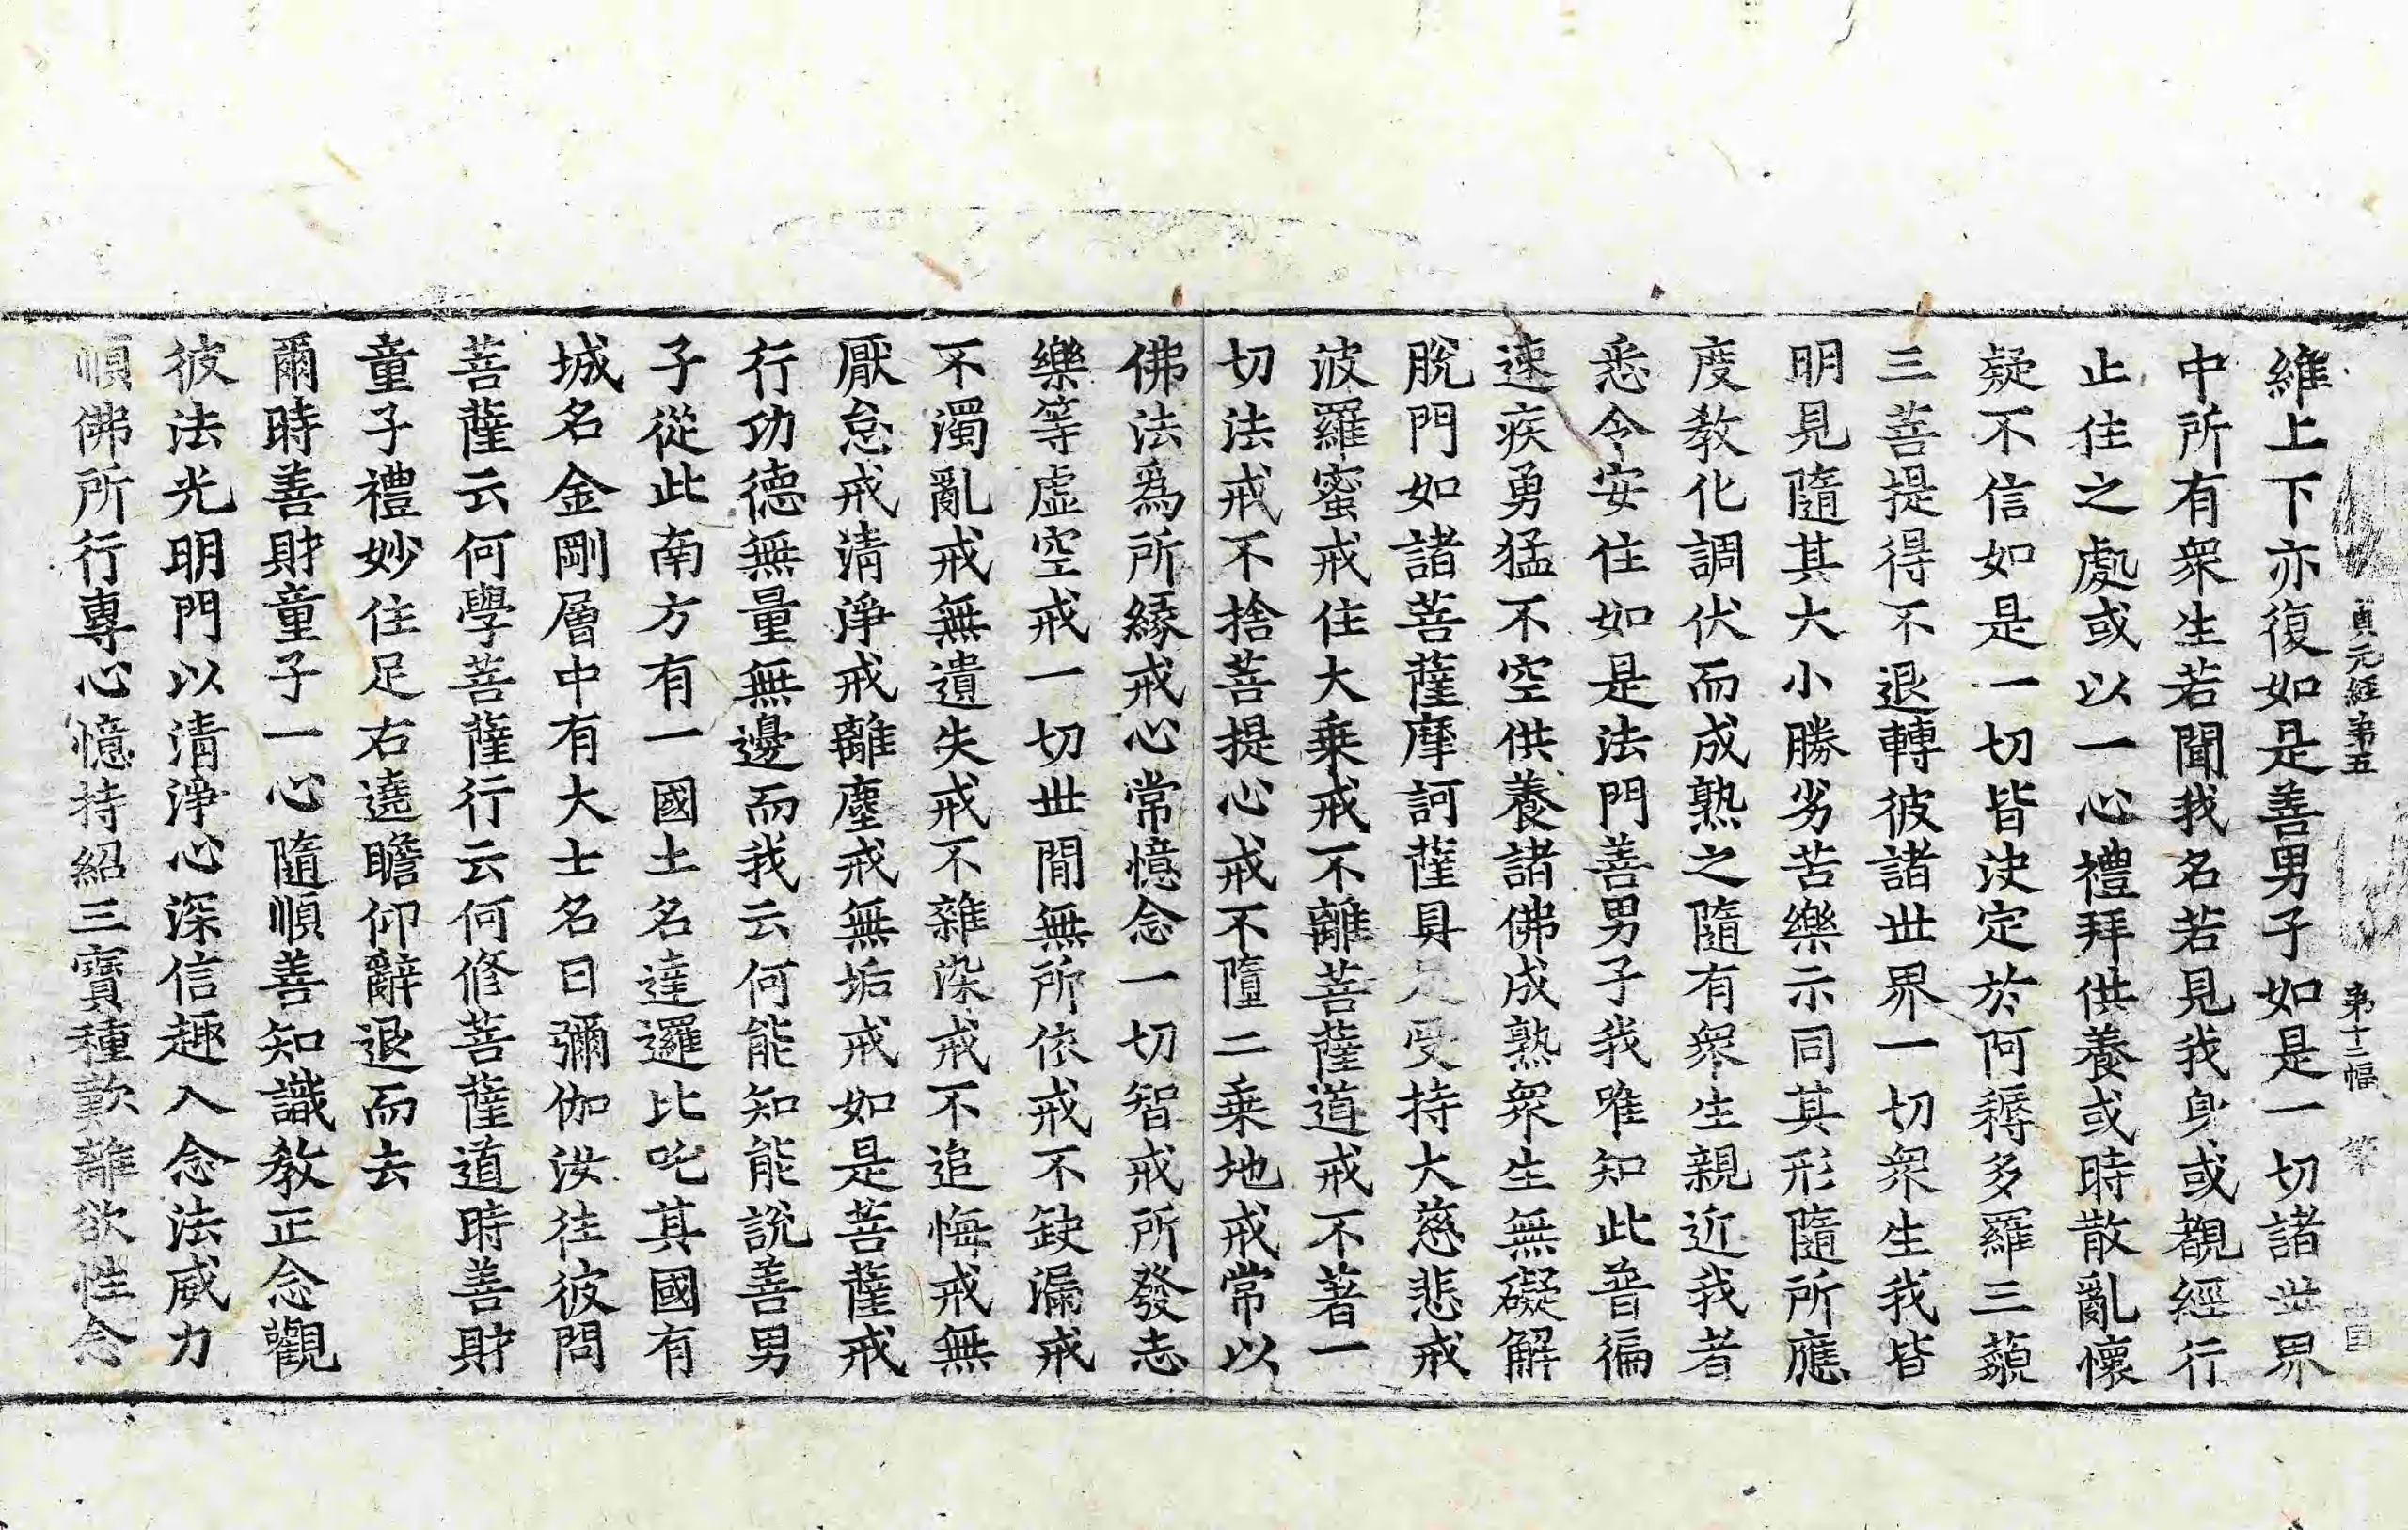 貞元經第五 第十二幅 策
維上下亦復如是善男子如是一切諸世界
中所有衆生若聞我名若見我身或覩經行
止住之處或以一心禮拜供養或時散亂懷
疑不信如是一切皆決定於阿耨多羅三藐
三菩提得不退轉彼諸世界一切衆生我皆
明見隨其大小勝劣苦樂示同其形隨所應
度教化調伏而成熟之隨有衆生親近我者
悉令安住如是法門善男子我唯知此普徧
速疾勇猛不空供養諸佛成熟衆生無礙解
脫門如諸菩薩摩訶薩具足受持大慈悲戒
波羅蜜戒住大乗戒不離菩薩道戒不著一
切法戒不捨菩提心戒不墮二乗地戒常以
佛法爲所緣戒心常憶念一切智戒所發志
樂等虛空戒一切世閒無所依戒不缺漏戒
不濁亂戒無遺失戒不雜染戒不追悔戒無
厭怠戒清淨戒離塵戒無垢戒如是菩薩戒
行功德無量無邊而我云何能知能說善男
子從此南方有一國土名達邏比吒其國有
城名金剛層中有大士名曰彌伽汝往彼問
菩薩云何學菩薩行云何修菩薩道時善財
童子禮妙住足右遶瞻仰辭退而去
爾時善財童子一心隨順善知識教正念觀
彼法光明門以清淨心深信趣入念法威力
順佛所行專心憶持紹三寶種歎離欲性念